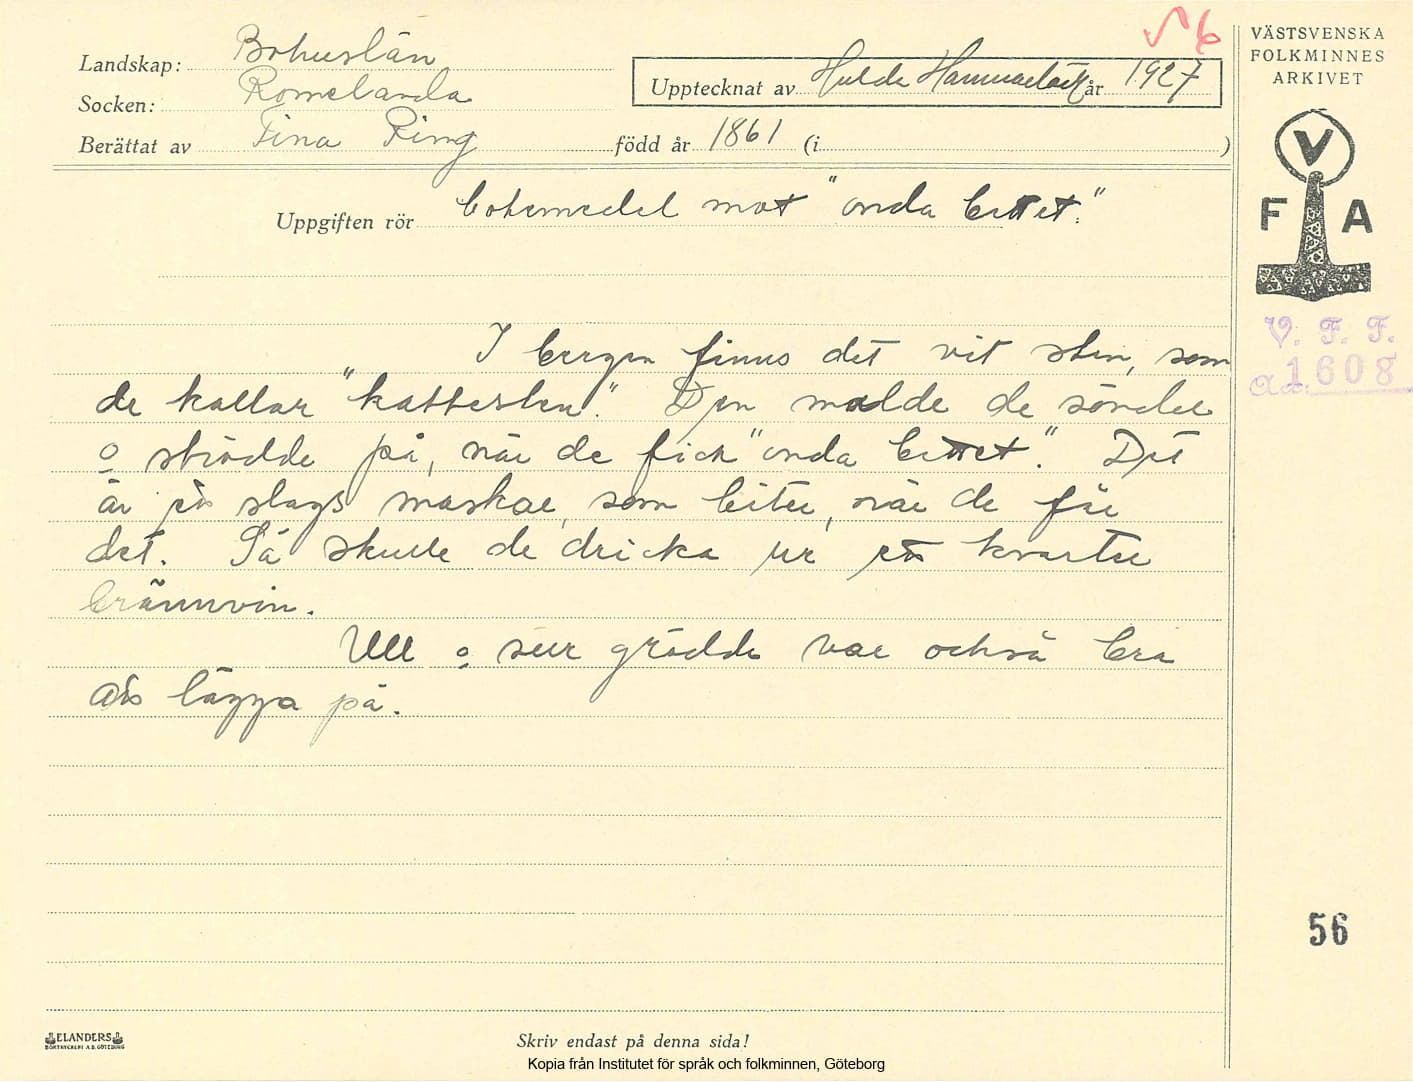 V6
VÄSTSVENSKA
FOLKMINNES
ARKIVET
Landskap: Bohuslän
Socken: Romelanda
Upptecknat av Hulda Hammarbäck år 1927
Berättat av Tina Ring född år 1861 (i )
Uppgiften rör botemedel mot "onda bettet."
V
F A
V. F. F.
Acc. 1608
I bergen finns det vit sten, som
de kallar "kattesten". Den malde de sönder
o strödde på, när de fick "onda bettet". Det
är ett slags maskar, som biter, när de får
det. Så skulle de dricka ur ett kvarter
brännvin.
Ull o sur grädde var också bra
att lägga på.
56
ELANDERS
BOKTRYCKERI A.B. GÖTEBORG
Skriv endast på denna sida!
Kopia från Institutet för språk och folkminnen, Göteborg